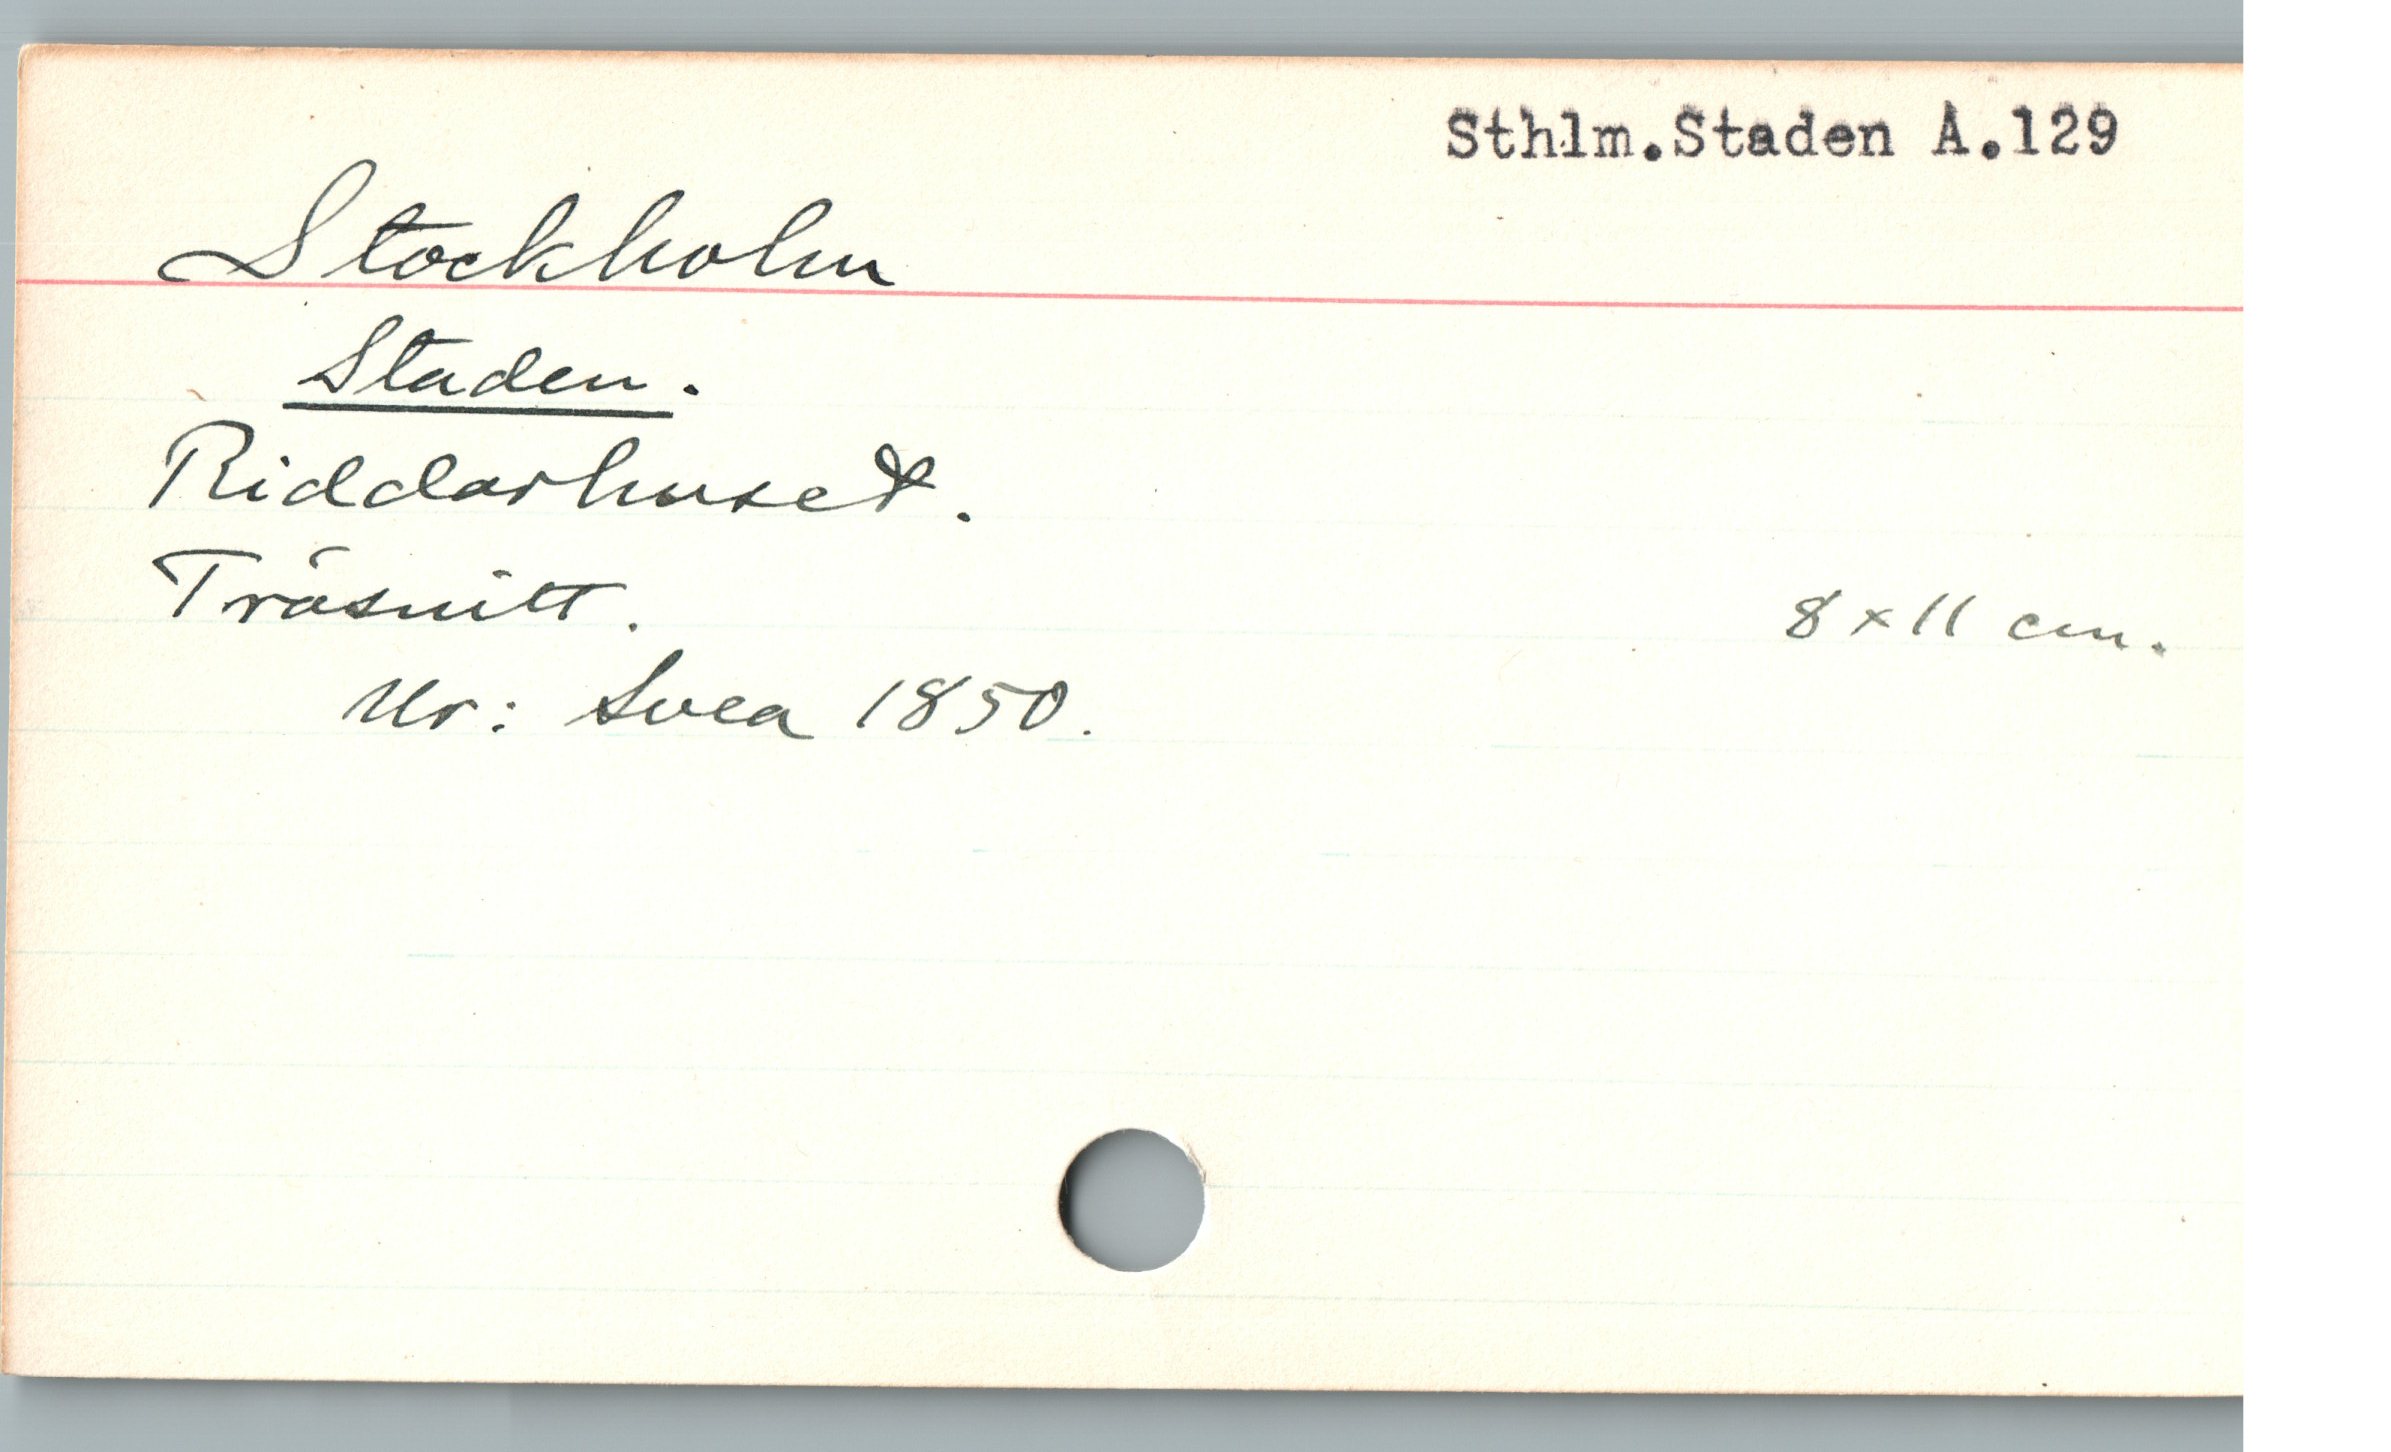 Sthlm.Staden A.129
Stockholm
Staden.
Riddarhuset.
Träsnitt.
8 x 11 cm.
Ur: Svea 1850.